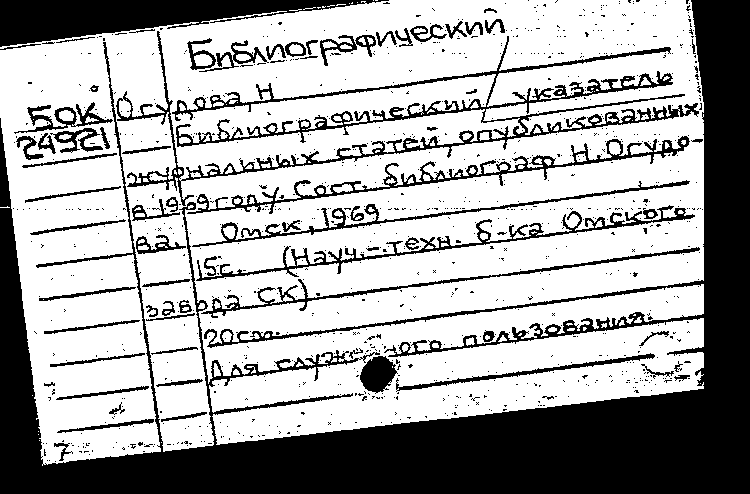 Библиографический
БОК Огудова, Н
24921 Библиографический указатель
журнальных статей, опубликованных
в 1969 году. Сост. библиограф Н. Огудо-
ва. Омск, 1969
15с. (Науч.-техн. б-ка Омского
завода СК).
20см.
Для служебного пользования.
7